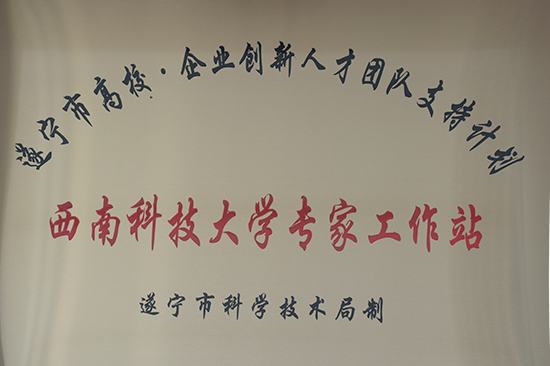 遂宁市高校·企业创新人才团队支持计划
西南科技大学专家工作站
遂宁市科学技术局制